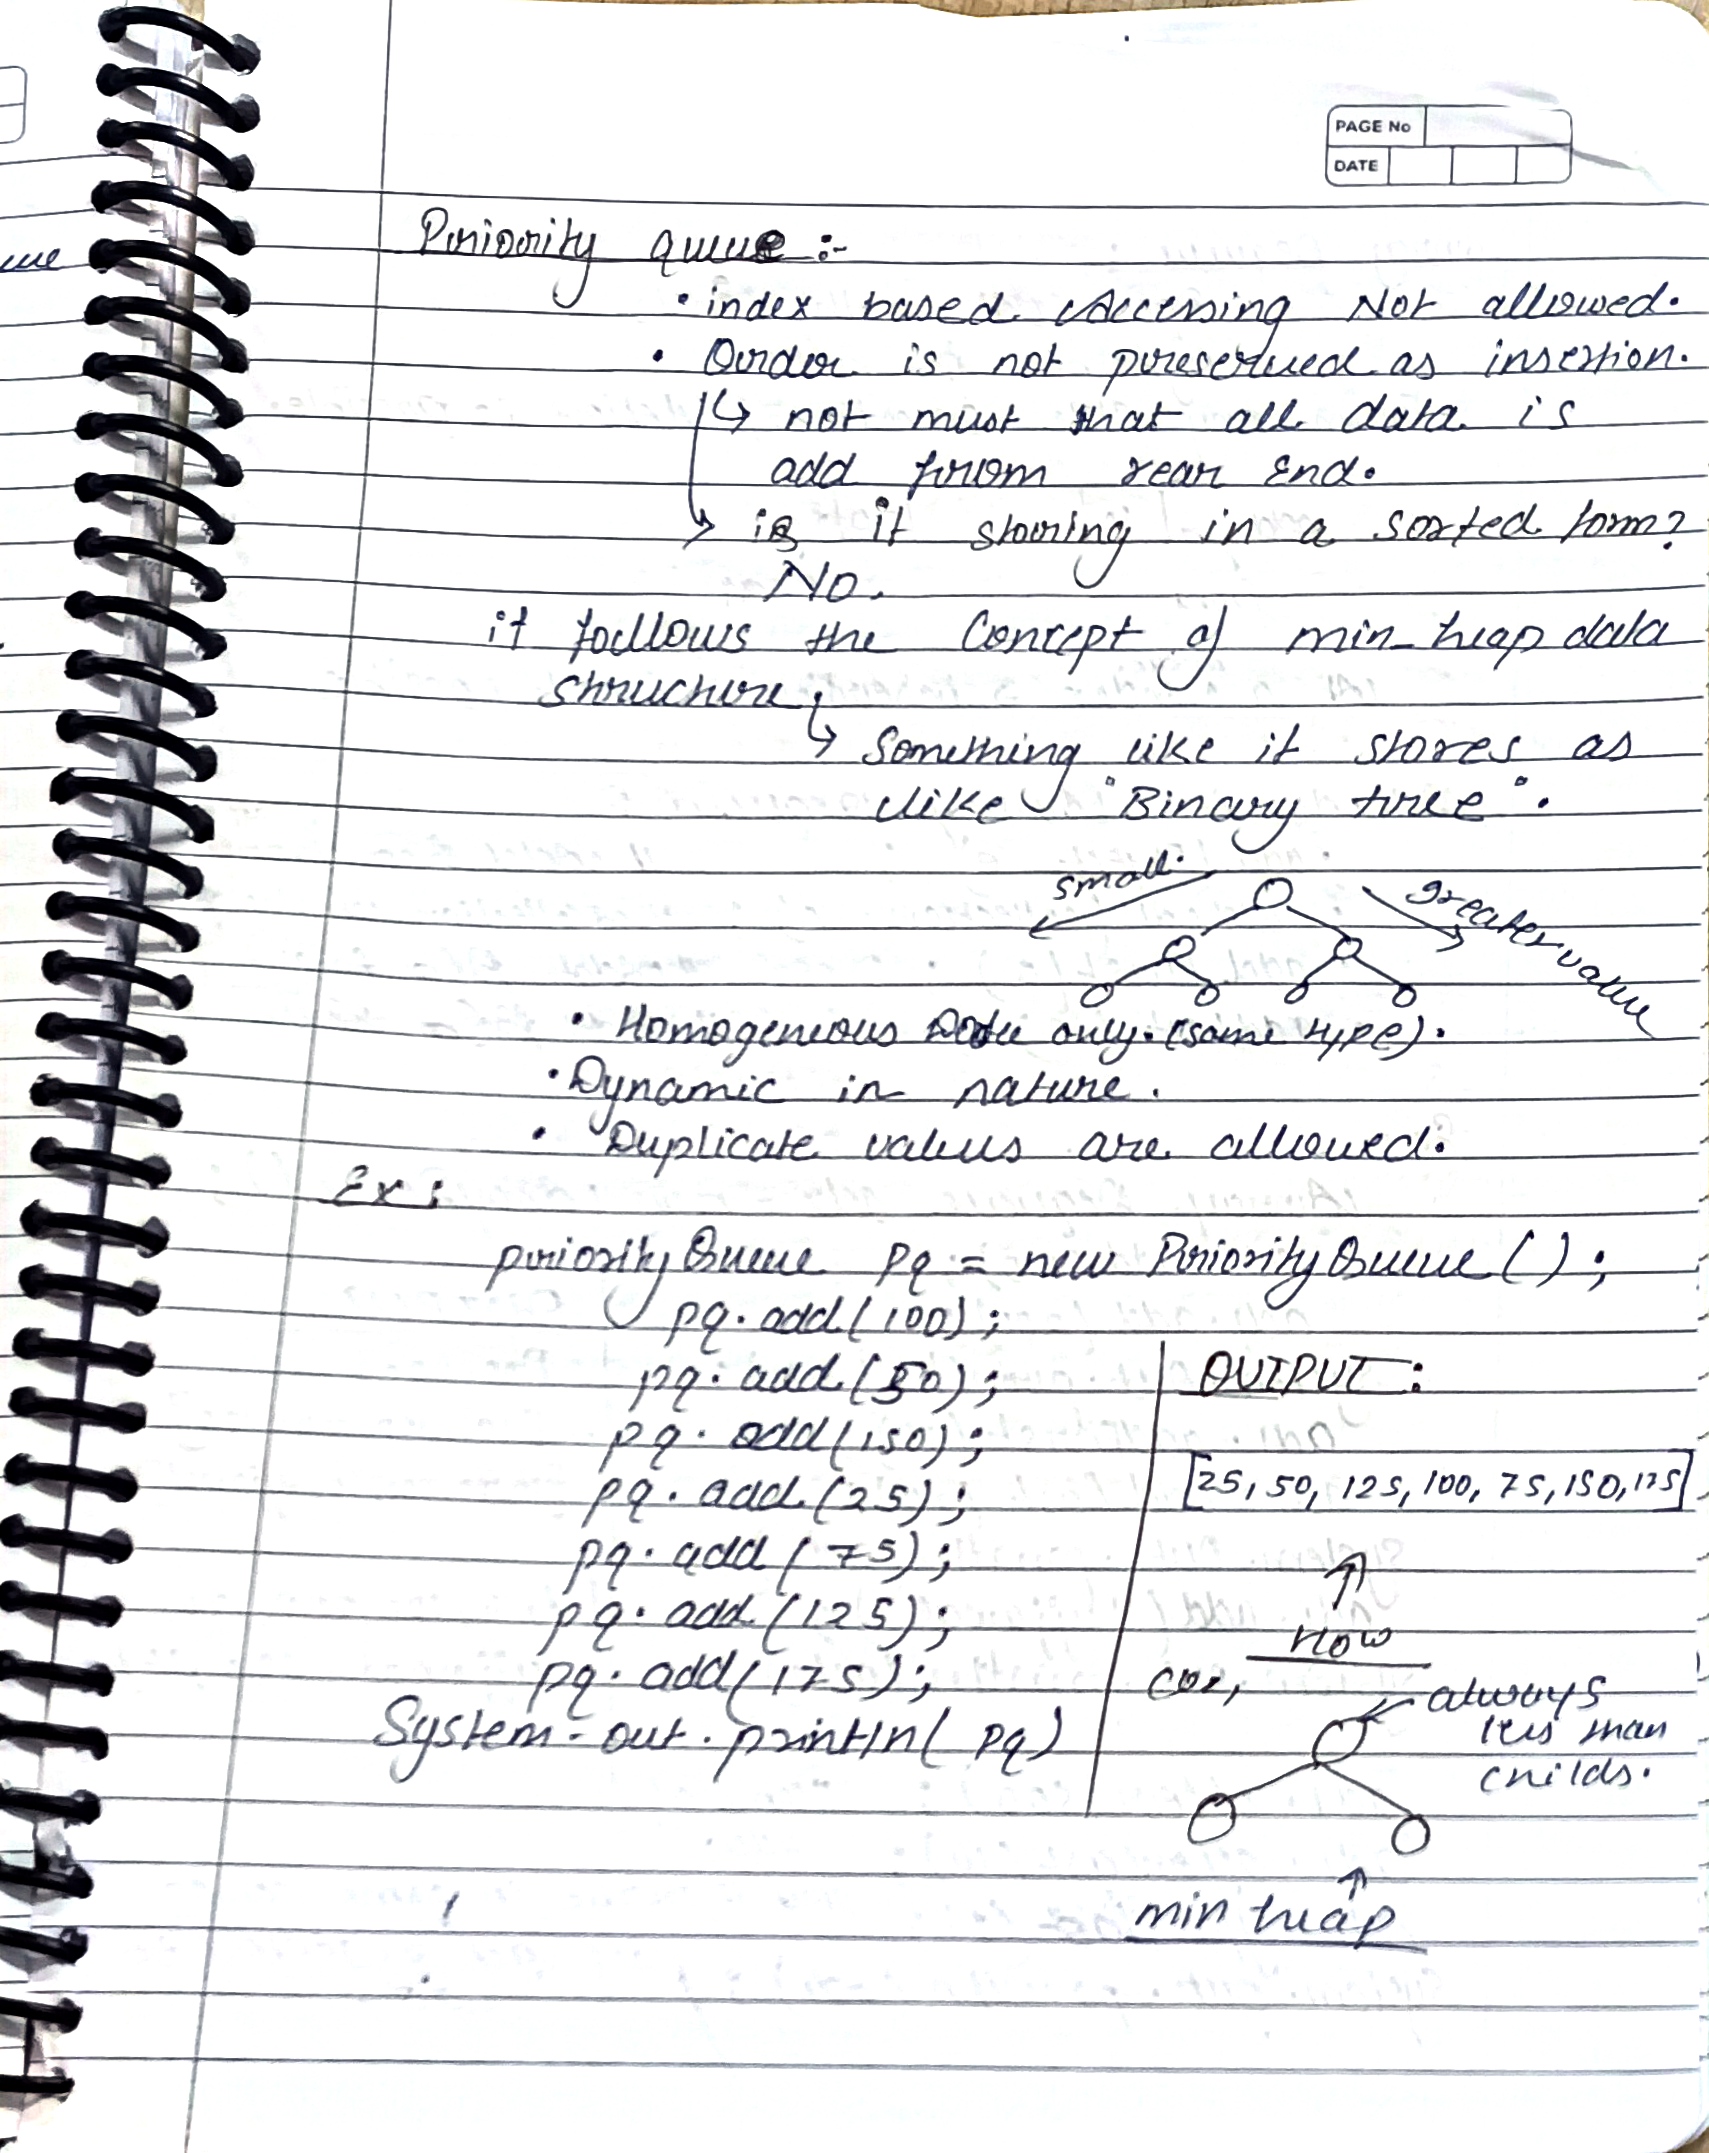 PAGE No
DATE
ue
Priority queue :-
• index based Accessing Not allowed.
• Order is not preserved as insertion.
↳ not must that all data is
add from rear End.
↳ is it storing in a sorted form?
No.
it follows the Concept of min-heap data
structure.
↳ Something like it stores as
like "Binary tree".
small.
greater value
• Homogeneous Data only. (same type).
• Dynamic in nature.
• Duplicate values are allowed.
Ex:
priorityQueue pq = new PriorityQueue();
pq.add(100);
pq.add(50);
pq.add(150);
pq.add(25);
pq.add(75);
pq.add(125);
pq.add(175);
System.out.println(pq)
OUTPUT:
[25, 50, 125, 100, 75, 150, 175]
↑
How
coz,
always
less than
childs.
↑
min heap